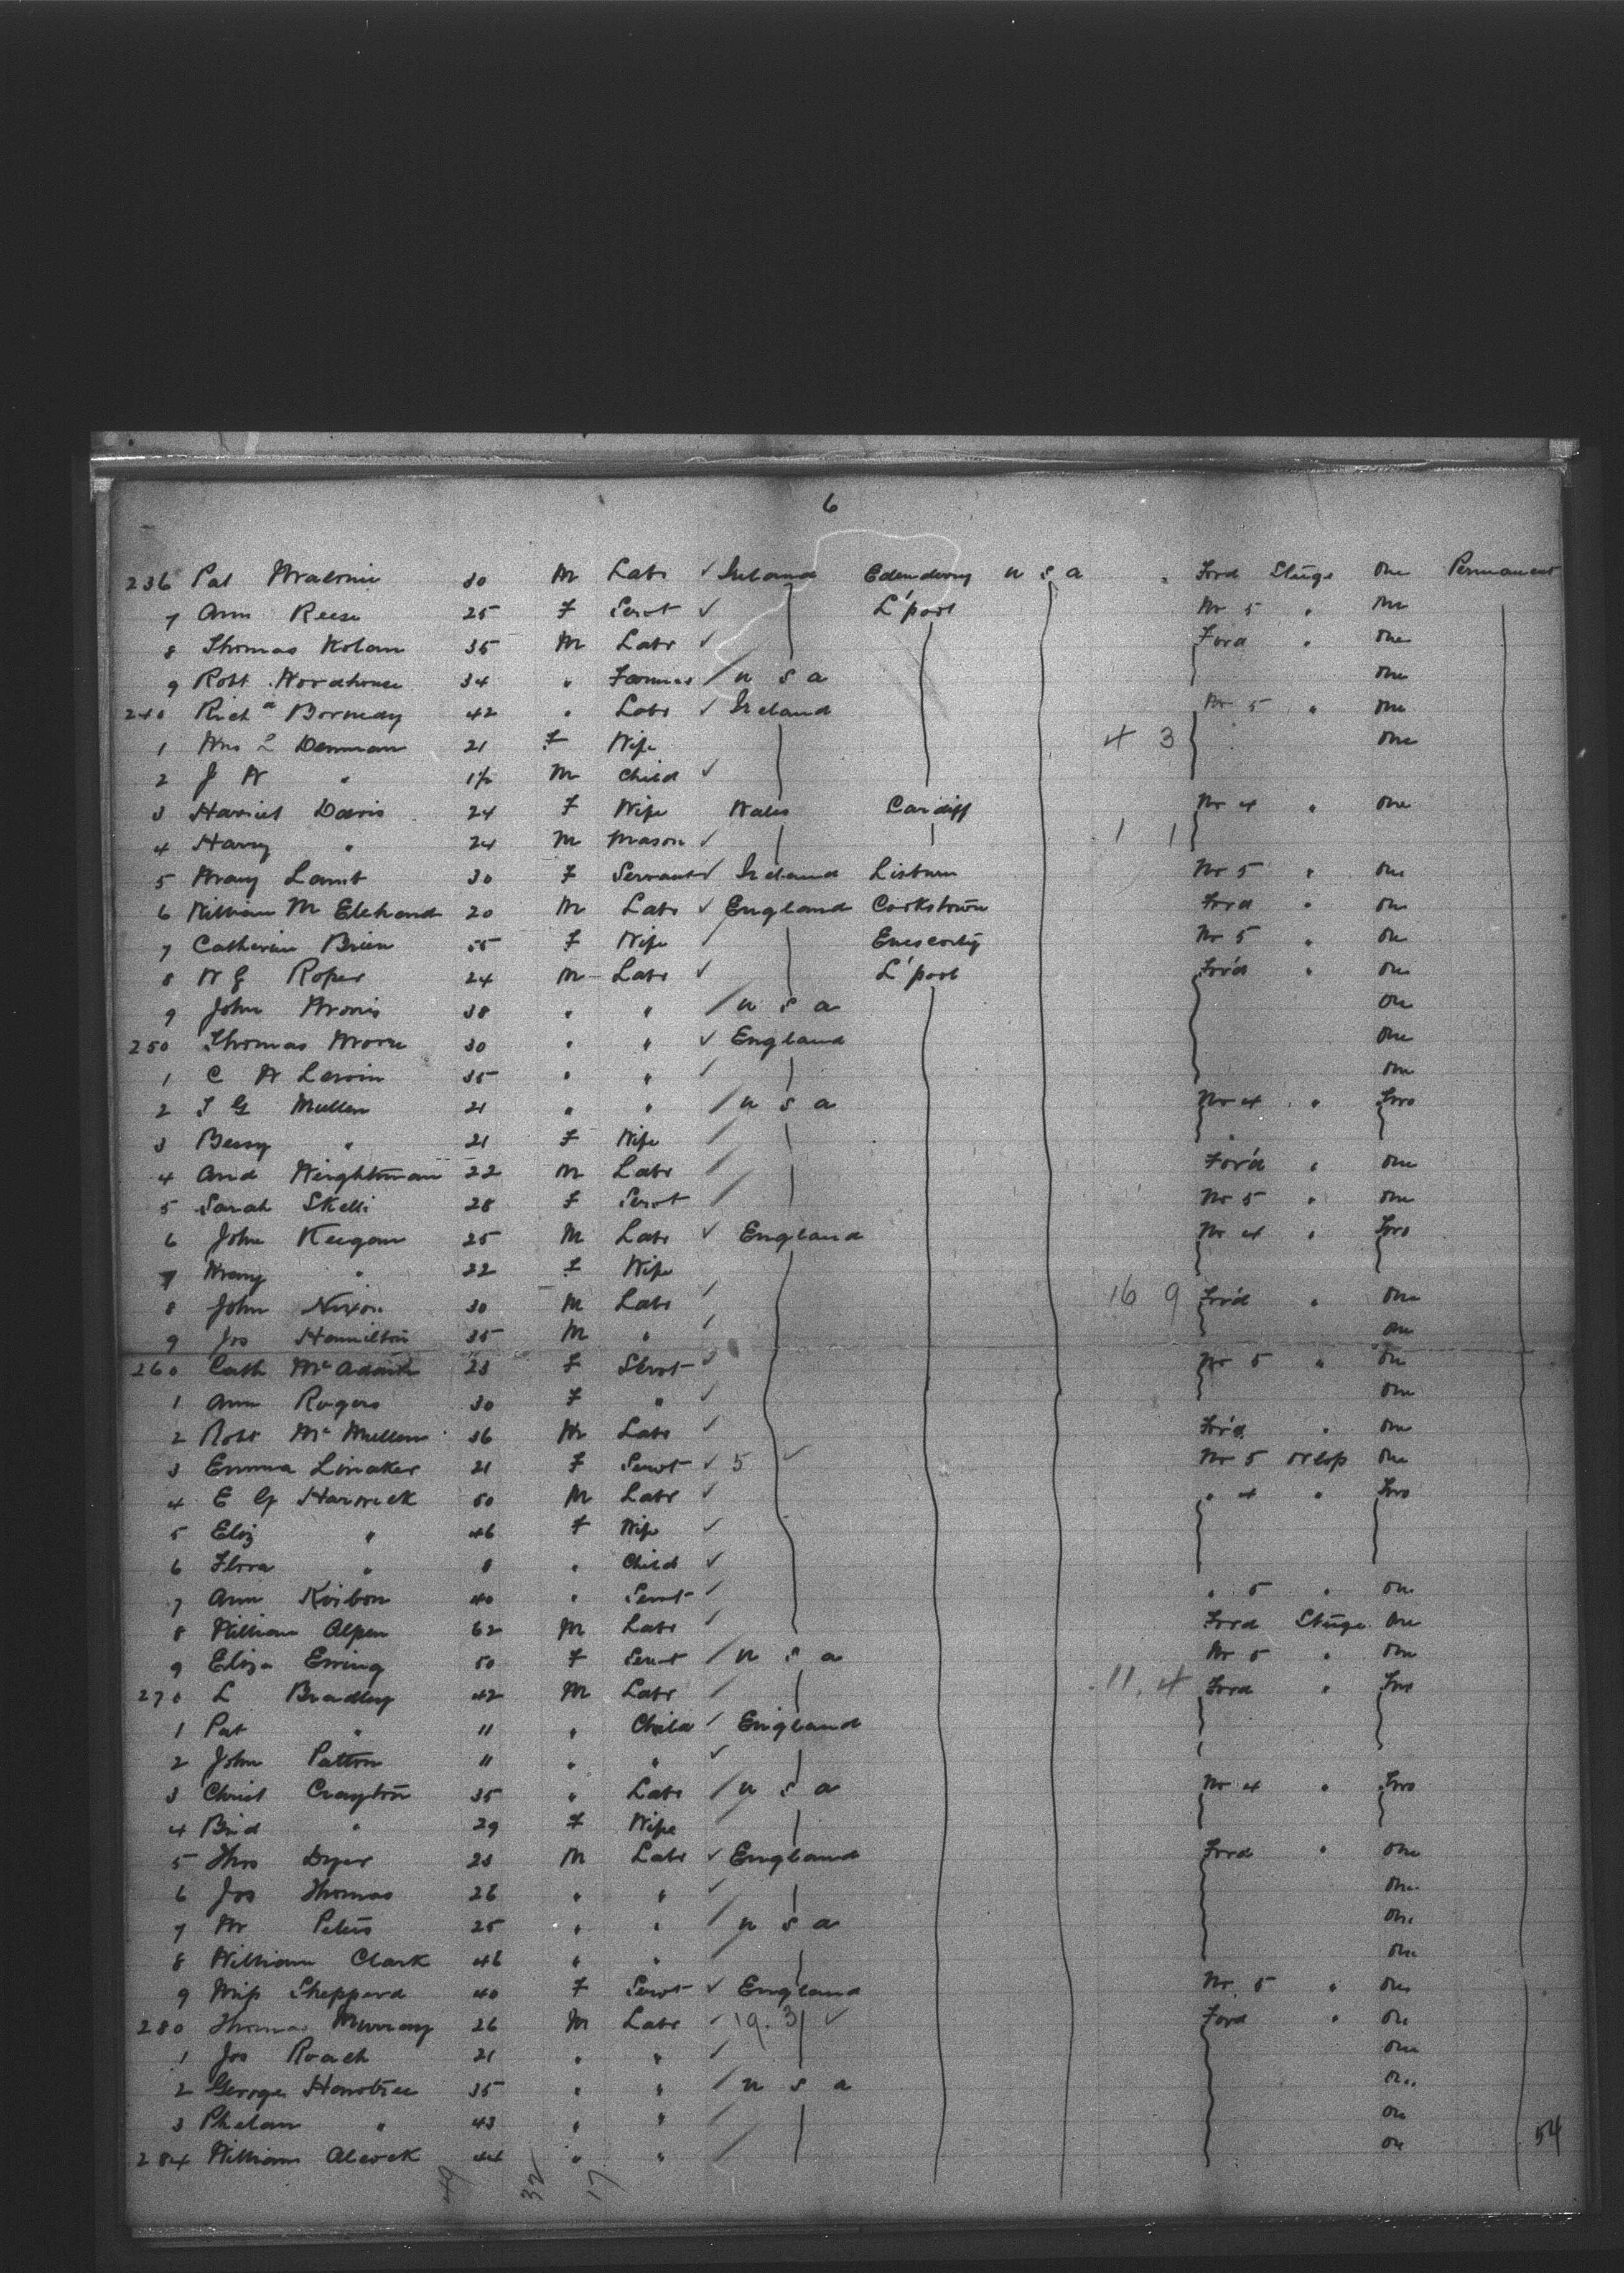 6
236 Pat Malonie 30 M Labr ✓ Ireland Edenderry U S A " Ford Stage One Permanent
7 Ann Reese 25 F Servt ✓ L'pool No 5 " One
8 Thomas Nolan 35 M Labr ✓ Ford " One
9 Robt Woodhouse 34 " Farmer / U S A One
240 Richd Bormedy 42 " Labr ✓ Ireland No 5 " One
1 Mrs L Denman 21 F Wife 4 3 One
2 J W " 1½ M Child ✓
3 Harriet Davis 24 F Wife Wales Cardiff No 4 " One
4 Harry " 24 M Mason ✓ 1 1
5 Mary Lamb 30 F Servant ✓ Ireland Lisburn No 5 " One
6 William M 20 M Labr ✓ England Cookstown Ford " One
7 Catherine Brien 55 F Wife / Enescorty No 5 " One
8 W G Roper 24 M Labr ✓ L'pool Ford " One
9 John Morris 38 " " / U S A One
250 Thomas Moore 30 " " ✓ England One
1 C W Lewin 35 " " / One
2 T G Mullen 21 " " / U S A No 4 " Two
3 Bessy " 21 F Wife /
4 And Weightman 22 M Labr / Ford " One
5 Sarah Skelli 28 F Servt / No 5 " One
6 John Keegan 25 M Labr ✓ England No 4 " Two
7 Mary " 22 F Wife
8 John Nixon 30 M Labr / 16 9 Ford " One
9 Jos Hamilton 35 M " / One
260 Cath 23 F Servt ✓ No 5 " One
1 Ann Rogers 30 F " ✓ One
2 Robt McMullen 36 M Labr / Ford " One
3 Emma Linaker 21 F Servt ✓ 5 ✓ No 5 Orlop One
4 E G Harwick 50 M Labr ✓ " 4 " Two
5 Eliz " 46 F Wife ✓
6 Flora " 8 " Child ✓
7 Ann Kirbon 40 " Servt / " 5 " One
8 William Alpen 62 M Labr / Ford Stage One
9 Eliza Ewing 50 F Servt / U S A No 5 " One
270 L Bradley 42 M Labr / 11 4 Ford " Two
1 Pat " 11 " Child / England
2 John Patton 11 " " ✓
3 Christ Crayton 35 " Labr / U S A No 4 " Two
4 Brid " 29 F Wife
5 Thos Dyer 23 M Labr ✓ England Ford " One
6 Jos Thomas 26 " " ✓ One
7 W Peters 25 " " / U S A One
8 William Clark 46 " " / One
9 Miss Sheppard 40 F Servt ✓ England No 5 " One
280 Thomas Murray 26 M Labr / 19.3 ✓ Ford " One
1 Jos Roach 21 " " / One
2 George 35 " " / U S A One
3 Phelan " 43 " " / One
284 William Alcock 44 " " / One 54
49 32 17